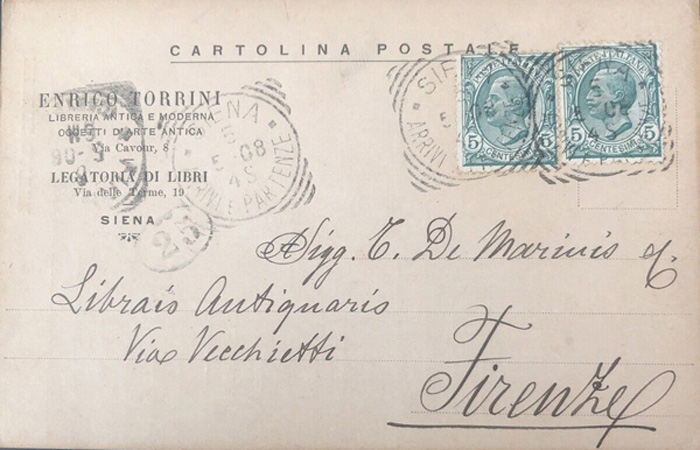 CARTOLINA POSTALE
ENRICO TORRINI
LIBRERIA ANTICA E MODERNA
OGGETTI D'ARTE ANTICA
Via Cavour, 8
LEGATORIA DI LIBRI
Via delle Terme, 19
SIENA
SIENA
5 08
4 S
ARRIVI E PARTENZE
25
SIENA
ARRIVI
POSTE ITALIANE
5 CENTESIMI 5
SIENA
POSTE ITALIANE
5 CENTESIMI 5
Sigg. T. De Marinis & C.
Librai Antiquari
Via Vecchietti
Firenze